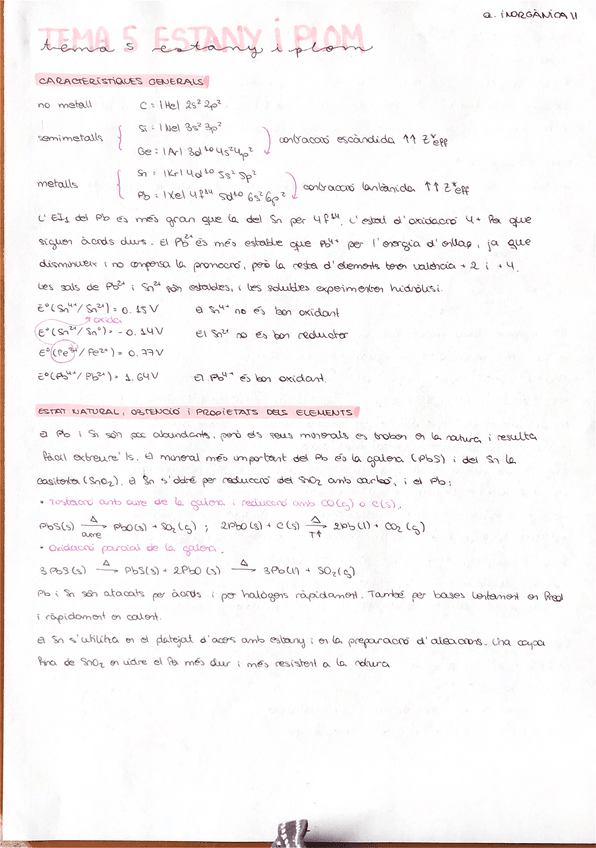 Q. INORGÀNICA II
TEMA 5 ESTANY I PLOM
tema 5 estany i plom
CARACTERÍSTIQUES GENERALS
no metall C = |He| 2s² 2p²
Si = |Ne| 3s² 3p²
semimetalls contracció escàndida ↑↑ Z*eff
Ge = |Ar| 3d¹⁰ 4s² 4p²
Sn = |Kr| 4d¹⁰ 5s² 5p²
metalls contracció lantànida ↑↑ Z*eff
Pb = |Xe| 4f¹⁴ 5d¹⁰ 6s² 6p²
L'EI₁ del Pb és més gran que la del Sn per 4f¹⁴. L'estat d'oxidació 4+ fa que
siguin àcids durs. El Pb²⁺ és més estable que Pb⁴⁺ per l'energia d'enllaç, ja que
disminueix i no compensa la promoció, però la resta d'elements tenen valència +2 i +4.
Les sals de Pb²⁺ i Sn²⁺ són estables, i les solubles experimenten hidròlisi.
E⁰(Sn⁴⁺/Sn²⁺) = 0.15V El Sn⁴⁺ no és bon oxidant
oxida
E⁰(Sn²⁺/Sn⁰) = -0.14V El Sn²⁺ no és bon reductor
E⁰(Fe³⁺/Fe²⁺) = 0.77V
E⁰(Pb⁴⁺/Pb²⁺) = 1.64V El Pb⁴⁺ és bon oxidant.
ESTAT NATURAL, OBTENCIÓ I PROPIETATS DELS ELEMENTS
El Pb i Sn són poc abundants, però els seus minerals es troben en la natura i resulta
fàcil extreure'ls. El mineral més important del Pb és la galena (PbS) i del Sn la
casiterita (SnO₂). El Sn s'obté per reducció del SnO₂ amb carbó, i el Pb:
• Torrefacció amb aire de la galena i reducció amb CO(g) o C(s).
PbS(s) →Δ aire PbO(s) + SO₂(g) ; 2PbO(s) + C(s) →Δ T↑ 2Pb(l) + CO₂(g)
• Oxidació parcial de la galena.
3PbS(s) →Δ PbS(s) + 2PbO(s) →Δ 3Pb(l) + SO₂(g)
Pb i Sn són atacats per àcids i per halògens ràpidament. També per bases lentament en fred
i ràpidament en calent.
El Sn s'utilitza en el platejat d'acers amb estany i en la preparació d'aleacions. Una capa
fina de SnO₂ en vidre el fa més dur i més resistent a la